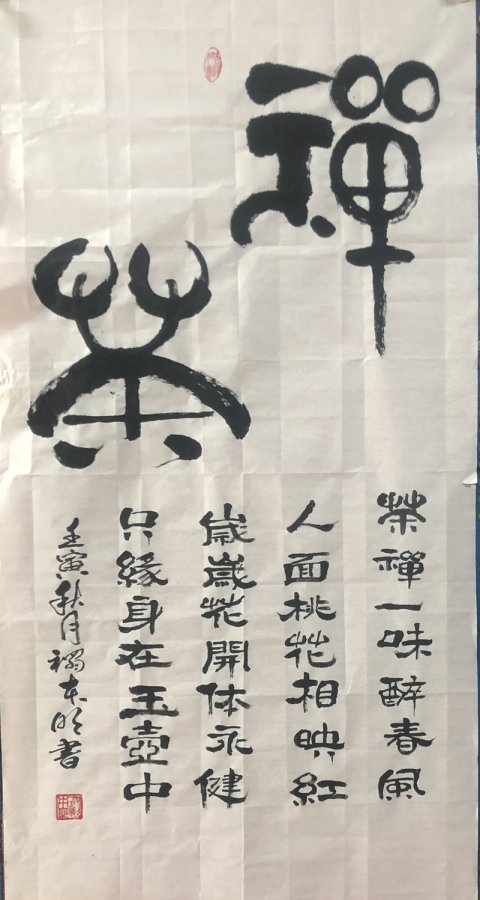 禪
茶
茶禪一味醉春風
人面桃花相映紅
歲歲花開体永健
只緣身在玉壺中
壬寅秋月禤东明書